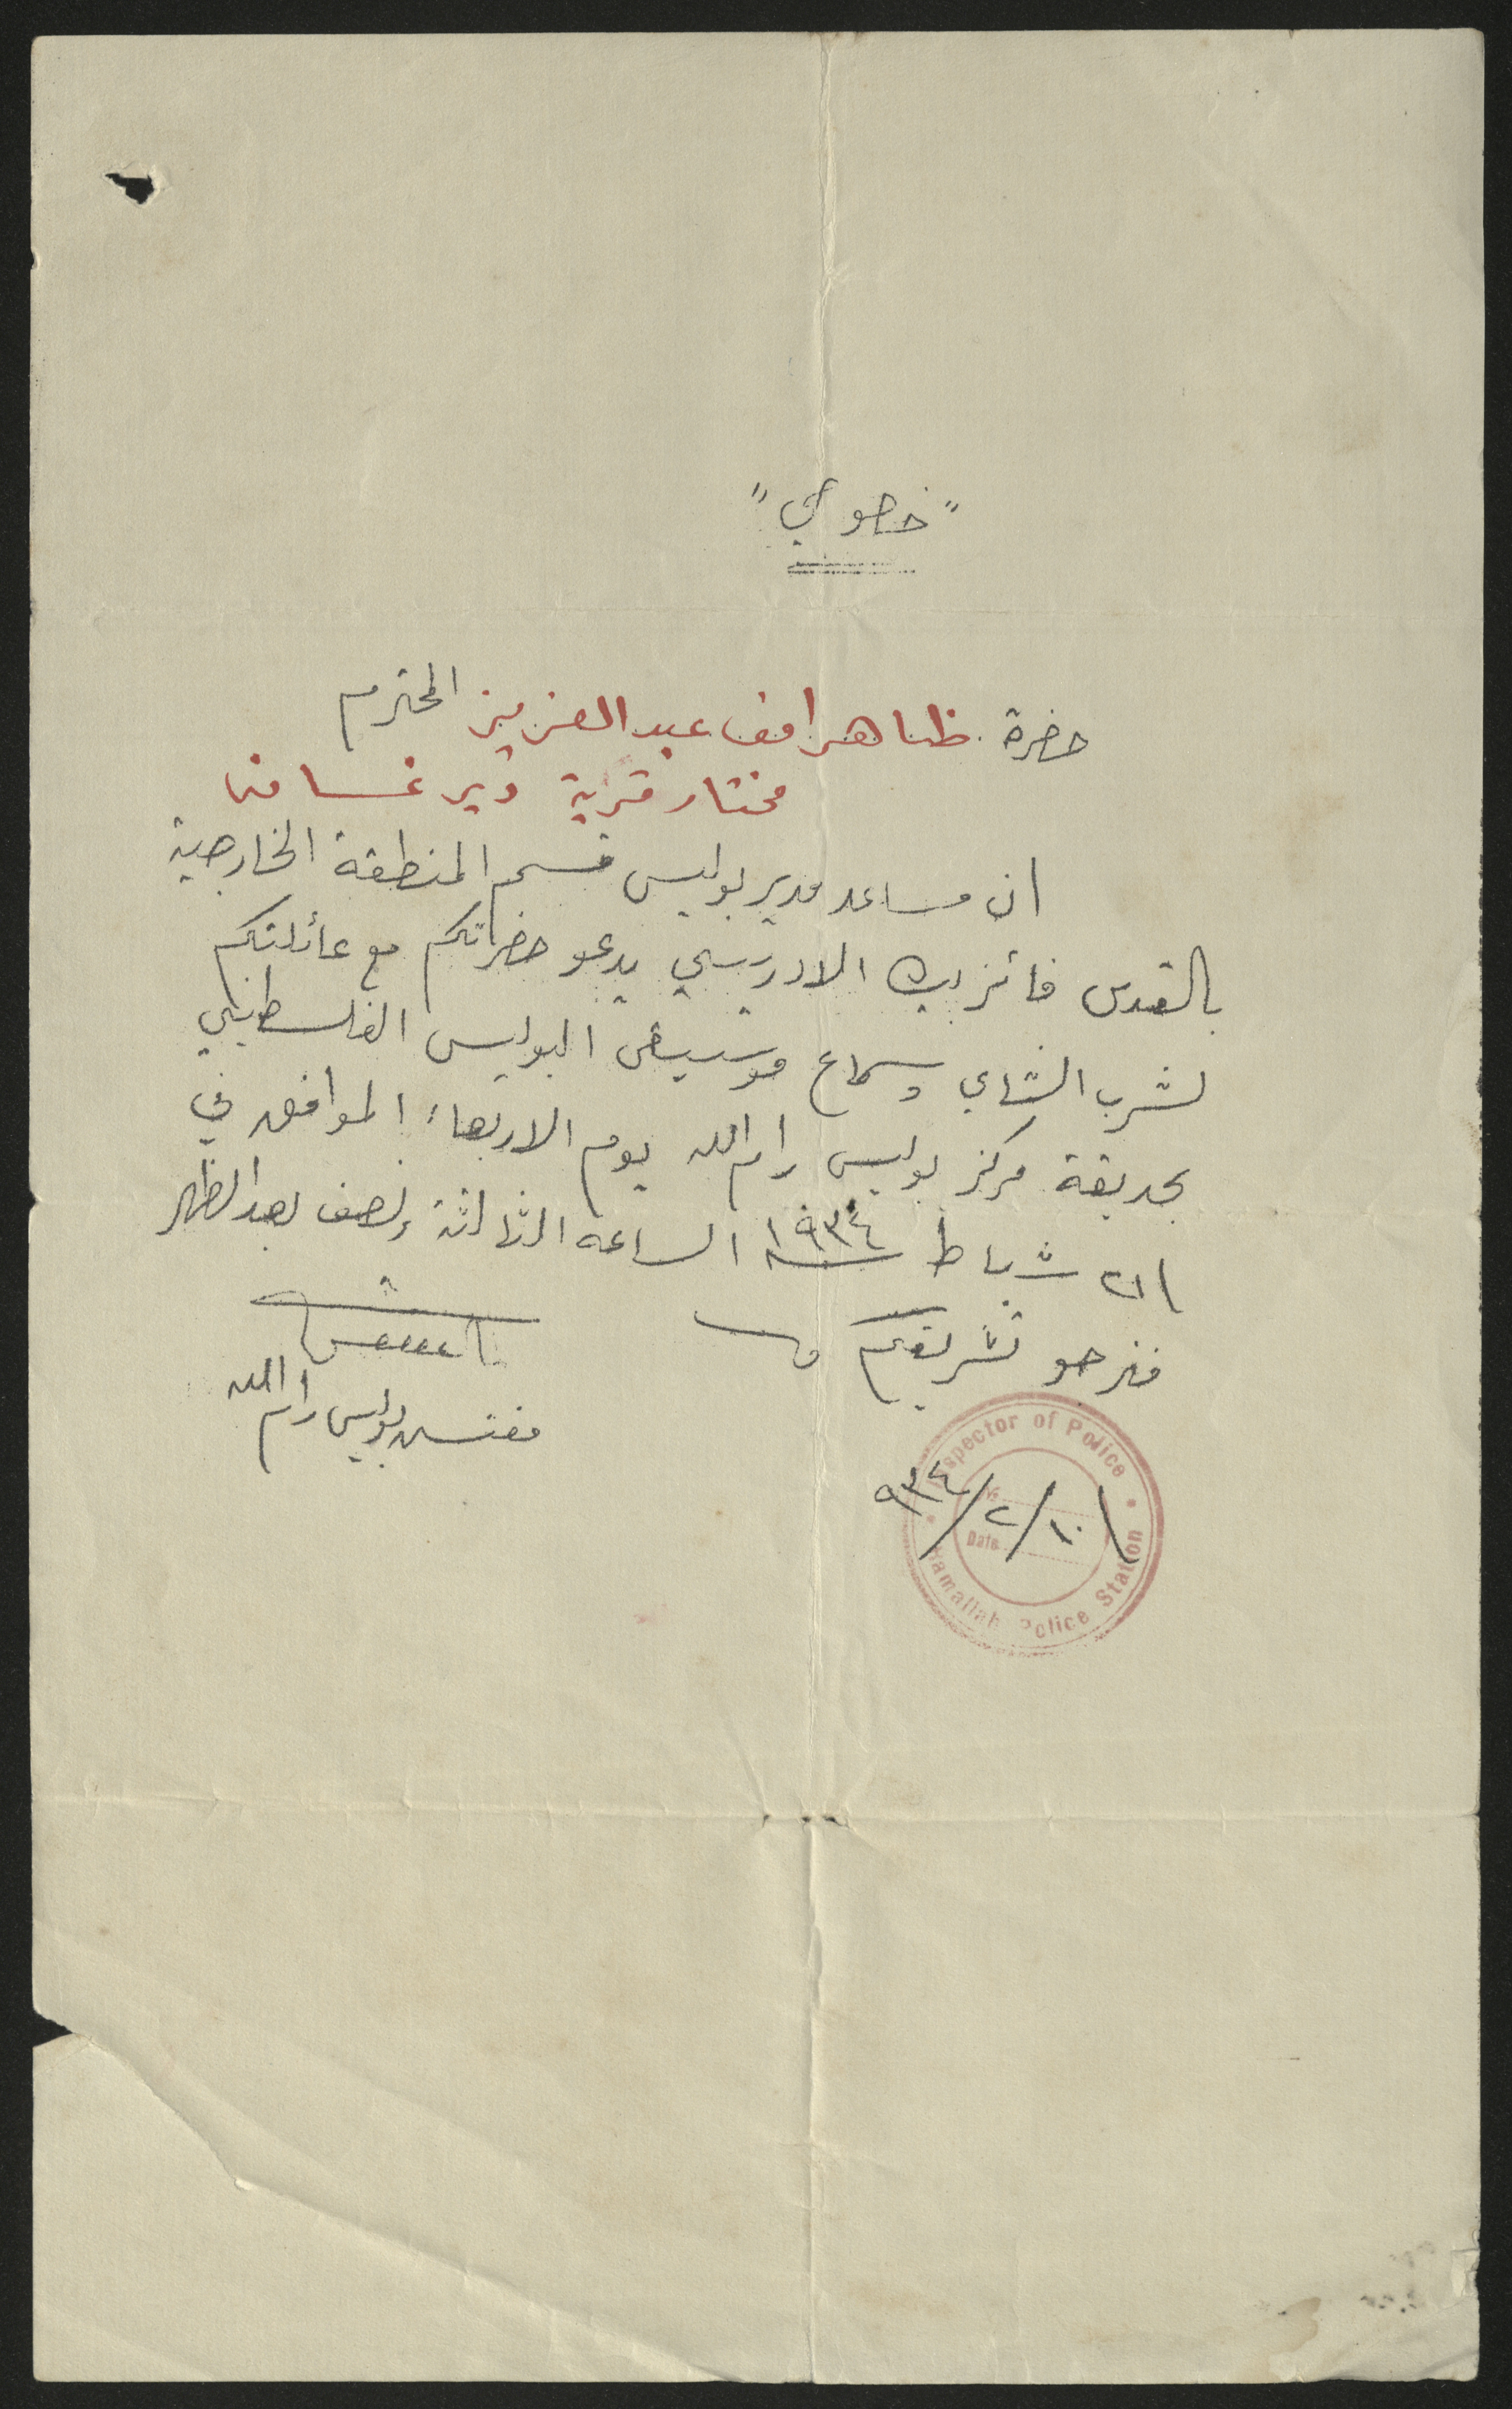 "خصوصي"
حضرة ظاهر افن عبد العزيز المحترم
مختار قرية دير غسانه
ان مساعد مدير بوليس قسم المنطقة الخارجية
بالقدس فائز بك الادريسي يدعو حضراتكم مع عائلتكم
لشرب الشاي وسماع موسيقى البوليس الفلسطيني
بحديقة مركز بوليس رام الله يوم الاربعاء الموافق في
٢١ شباط سنة ١٩٣٤ الساعة الثالثة ونصف بعد الظهر
فنرجو تشريفكم
مفتش بوليس رام الله
Inspector of Police
No
Date
١٠/٢/٩٣٤
Ramallah Police Station